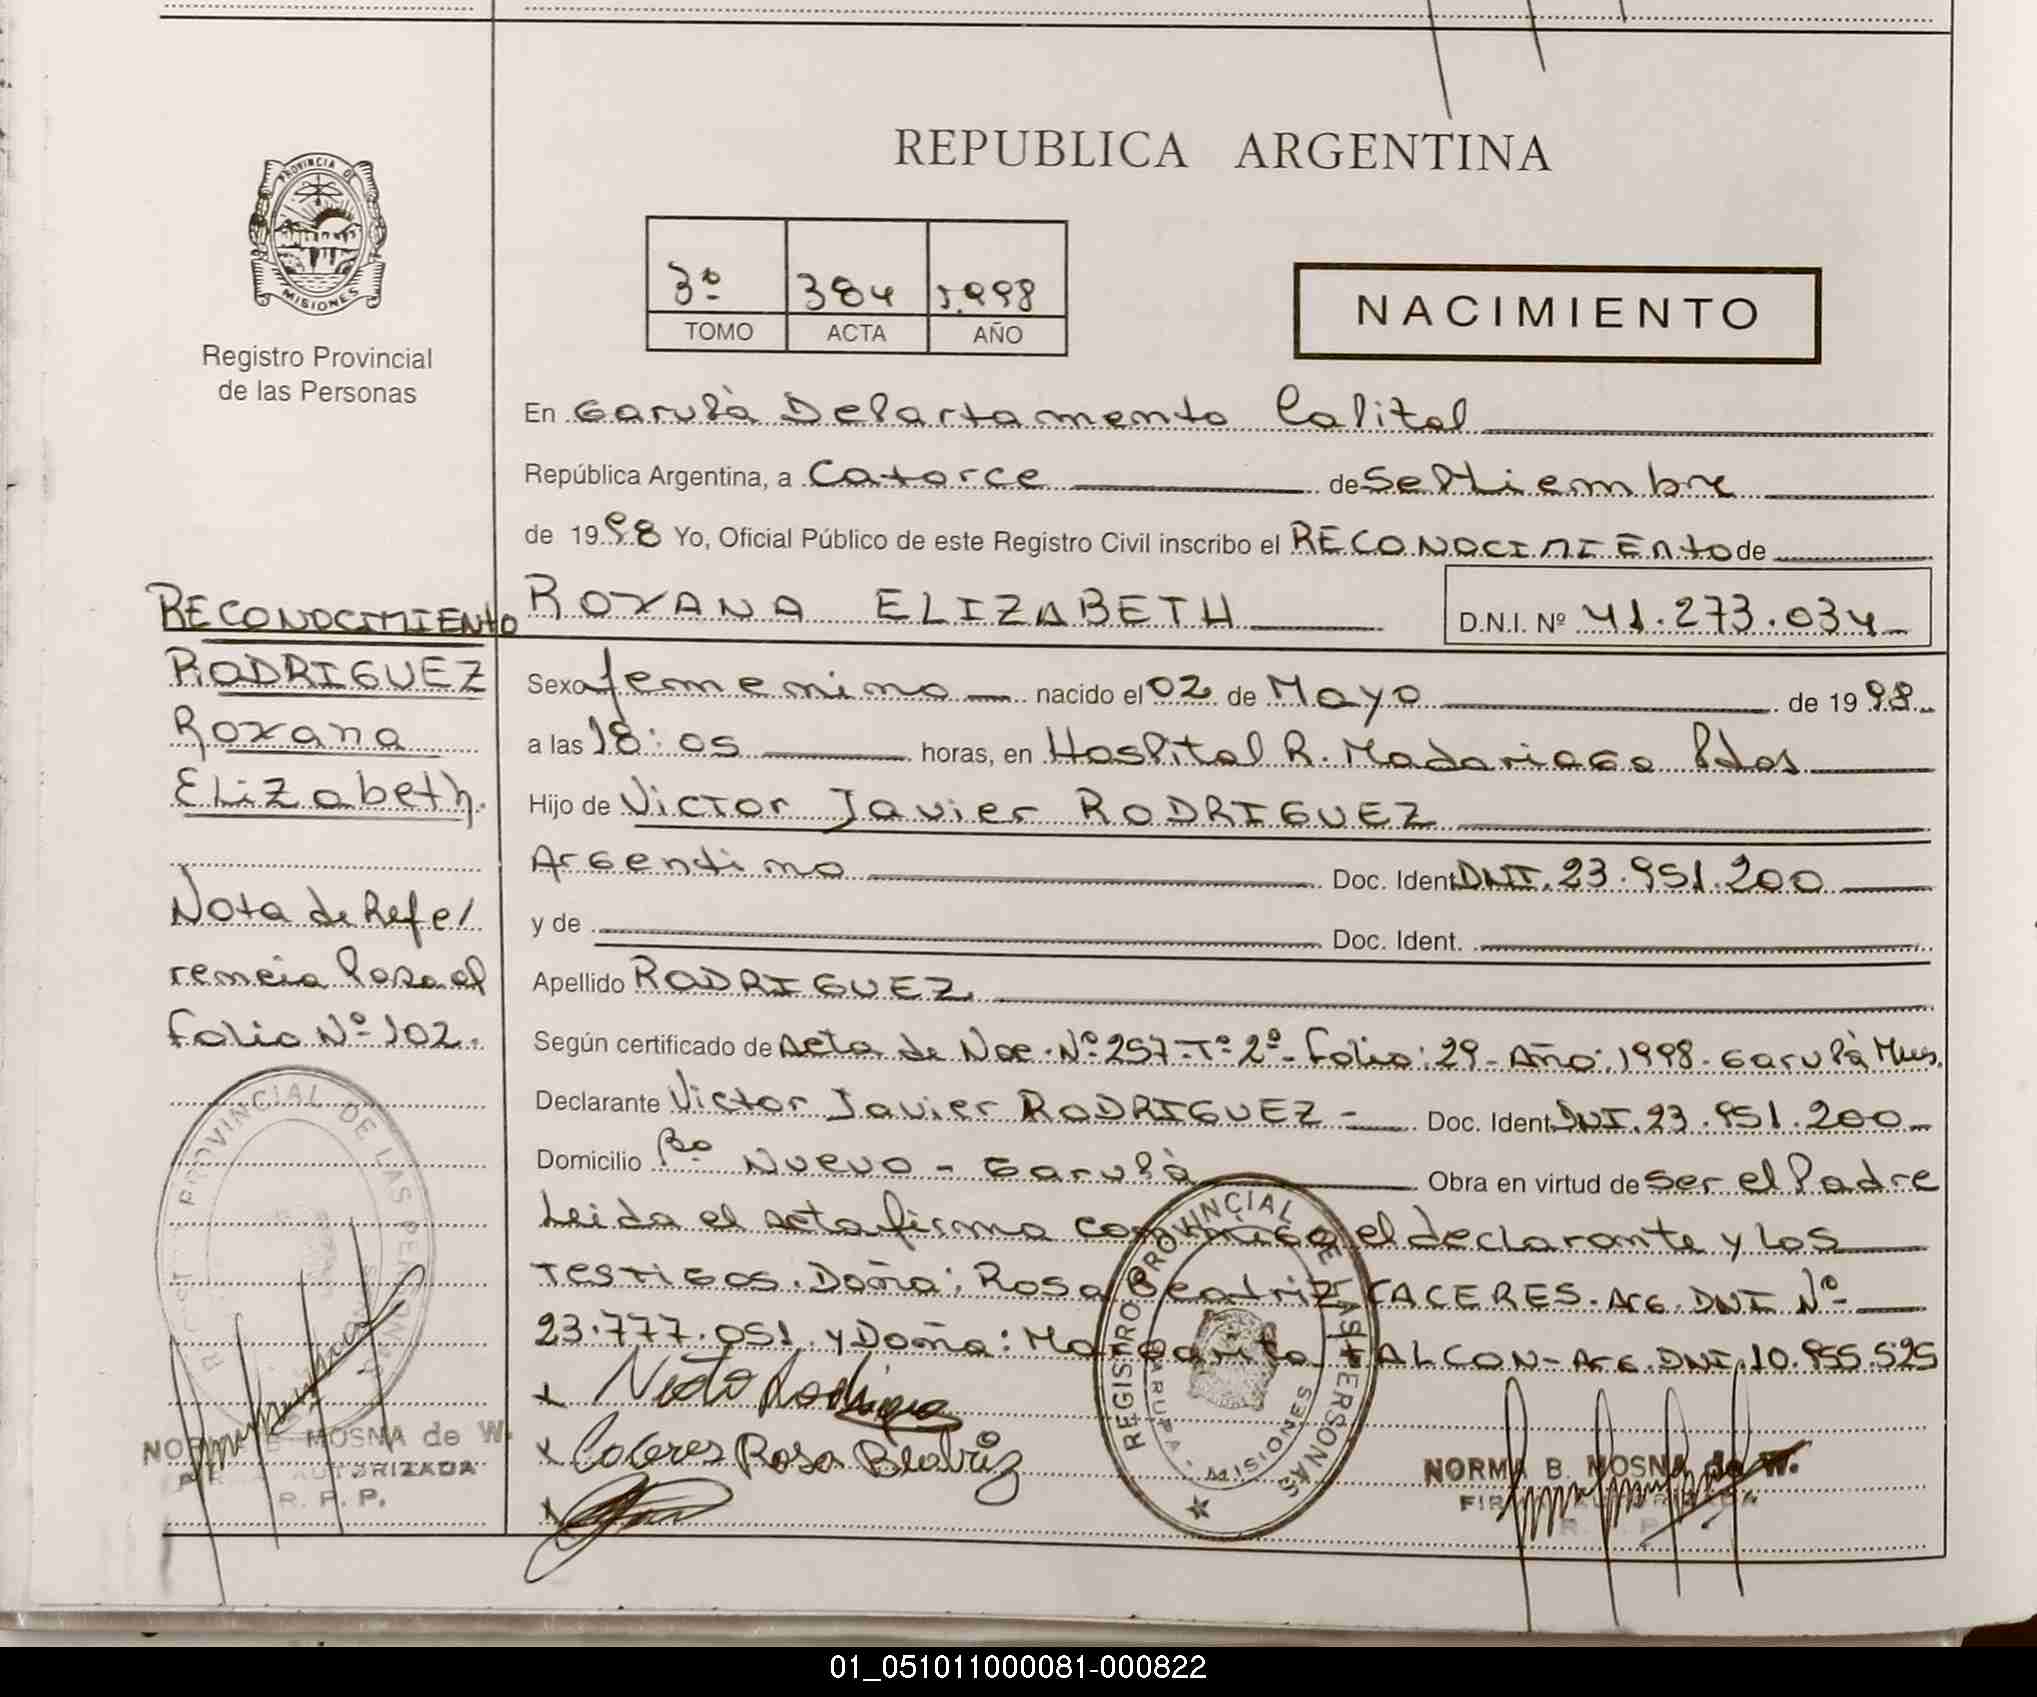 REPUBLICA ARGENTINA
PROVINCIA DE
MISIONES
Registro Provincial
de las Personas
3º 384 1.998
TOMO ACTA AÑO
NACIMIENTO
En Garupà Departamento Capital
República Argentina, a Catorce de Septiembre
de 1998 Yo, Oficial Público de este Registro Civil inscribo el RECONOCIMIENTO de
ROXANA ELIZABETH D.N.I. Nº 41.273.034
RECONOCIMIENTO
RODRIGUEZ
Roxana
Elizabeth.
Nota de Refe/
rencia Pasa al
folio Nº 102.
Sexo femenino nacido el 02 de Mayo de 1998
a las 18:05 horas, en Hospital R. Madariaga Pdas
Hijo de Victor Javier RODRIGUEZ
Argentino Doc. Ident. DNI. 23.951.200
y de Doc. Ident.
Apellido RODRIGUEZ
Según certificado de Acta de Nac. Nº 257-Tº 2º- folio: 29- Año: 1998- Garupà Mnes.
Declarante Victor Javier RODRIGUEZ - Doc. Ident. DNI. 23.951.200
Domicilio Bº Nuevo - Garupà Obra en virtud de ser el Padre
Leida el acta firma conmigo el declarante y los
Testigos. Doña: Rosa Beatriz CACERES. Arg. DNI Nº
23.777.051 y Doña: Margarita FALCON- Arg. DNI. 10.955.525
x
x Caceres Rosa Beatriz
x
REGISTRO PROVINCIAL DE LAS PERSONAS
GARUPA - MISIONES
NORMA B. MOSNA de W.
FIRMA AUTORIZADA
R. P. P.
NORMA B. MOSNA de W.
FIRMA AUTORIZADA
R. P. P.
01_051011000081-000822